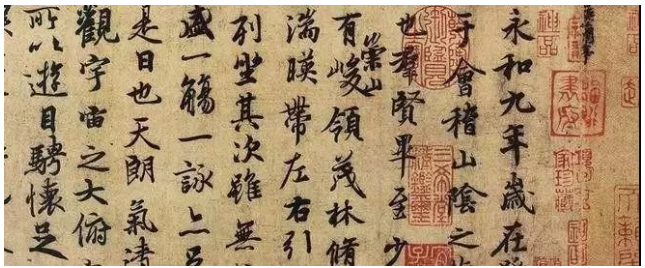 神品
永和九年歲在
于會稽山陰之
也羣賢畢至少
有崇山峻領茂林脩
湍暎帶左右引
列坐其次雖無
盛一觴一詠亦足
是日也天朗氣清
觀宇宙之大俯
所以遊目騁懷足
三希堂精鑑璽